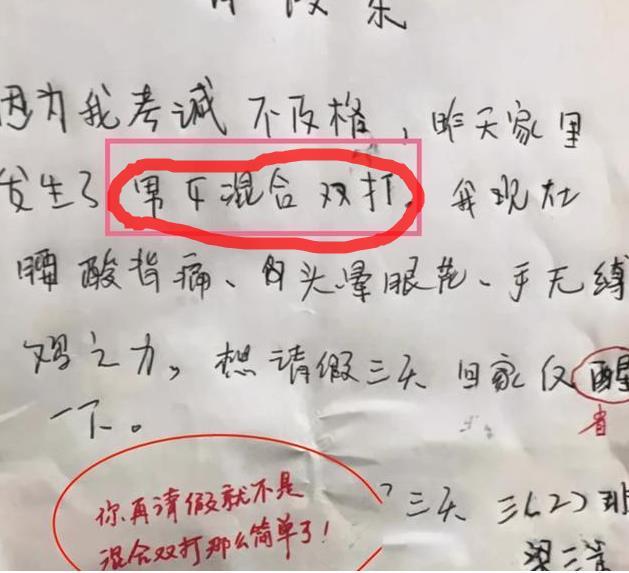 因为我考试不及格，昨天家里
发生了男女混合双打。我现在
腰酸背痛、头晕眼花、手无缚
鸡之力，想请假三天回家反醒
省
一下。
三天 三(2)班
你再请假就不是
混合双打那么简单了！